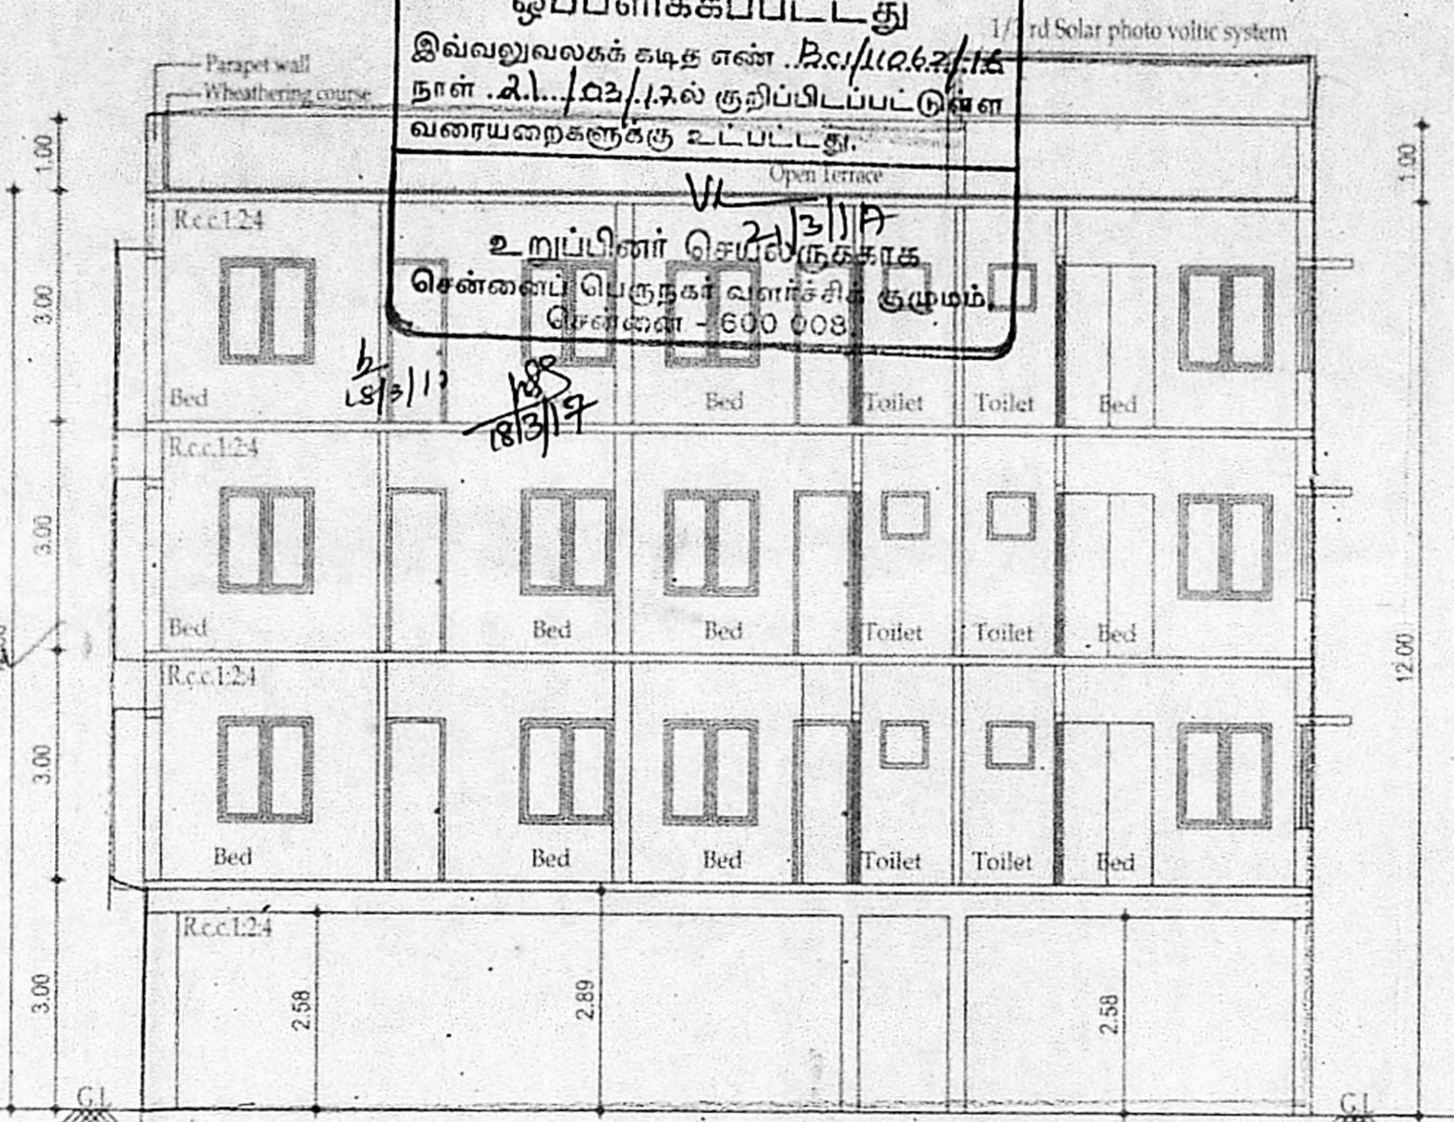 ஒப்பளிக்கப்பட்டது
இவ்வலுவலகக் கடித எண் .B.C1/11062/16
நாள் .21../.03/.17ல் குறிப்பிடப்பட்டுள்ள
வரையறைகளுக்கு உட்பட்டது.
21/3/17
உறுப்பினர் செயலருக்காக
சென்னைப் பெருநகர் வளர்ச்சிக் குழுமம்,
சென்னை - 600 008.
1/3 rd Solar photo voltic system
Parapet wall
Wheathering course
Open Terrace
1.00
1.00
R.c.c.1:2:4
3.00
18/3/17
18/3/17
Bed
Bed
Toilet
Toilet
Bed
R.c.c.1:2:4
3.00
Bed
Bed
Bed
Toilet
Toilet
Bed
12.00
R.c.c.1:2:4
3.00
Bed
Bed
Bed
Toilet
Toilet
Bed
R.c.c.1:2:4
3.00
2.58
2.89
2.58
G.L
G.L